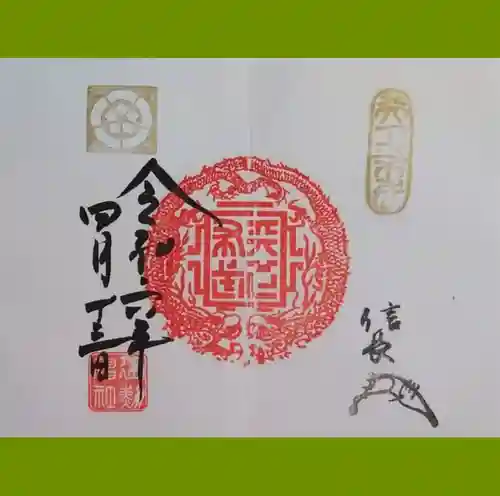 天下布武
信長
天下布武
令和六年
四月十三日